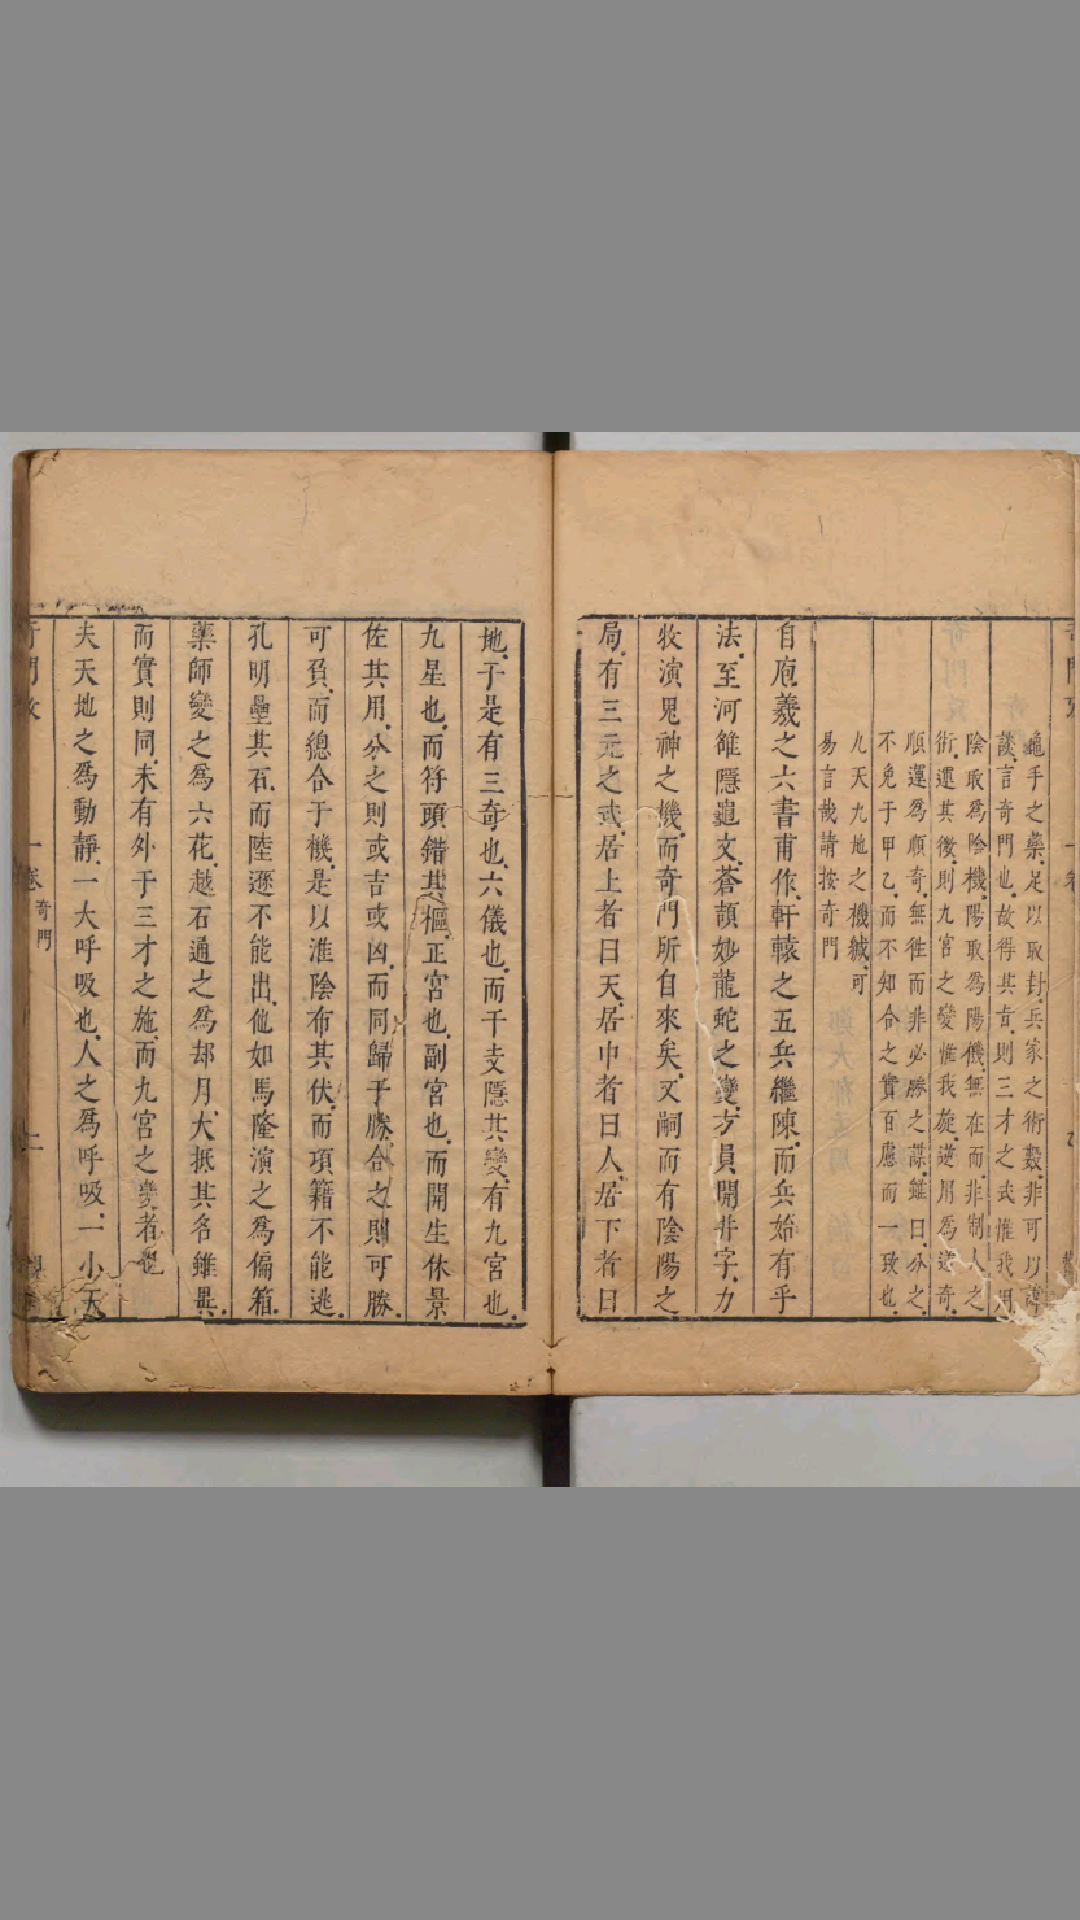 龜手之藥足以取封兵家之術數非可以
談言奇門也故得其
則三才之式惟我用
陰取爲陰機陽取爲陽機無在而非制人之
術還其後則九宮之變惟我旋逆用爲逆奇
順運爲順奇無往而非必勝之謀雖曰分之
不免于甲乙而不知合之實百慮而一致也
九天九地之機緘可
易言哉請按奇門
自庖羲之六書甫作軒轅之五兵繼陳而兵始有乎
法至河雒隱龜文蒼頡妙龍蛇之變方員開井字力
牧演鬼神之機而奇門所自來矣又嗣而有陰陽之
局有三元之或居上者曰天居中者曰人居下者曰
地于是有三奇也六儀也而干支隱其變有九宮也
九星也而符頭錯其樞正宮也副宮也而開生休景
佐其用分之則或吉或凶而同歸于勝合之則可勝
可負而總合于機是以淮陰布其伏而項籍不能逃
孔明壘其石而陸遜不能出他如馬隆演之爲偏箱
藥師變之爲六花越石通之爲却月大抵其名雖異
而實則同未有外于三才之施而九宮之變者也
夫天地之爲動靜一大呼吸也人之爲呼吸一小天
一卷
奇門